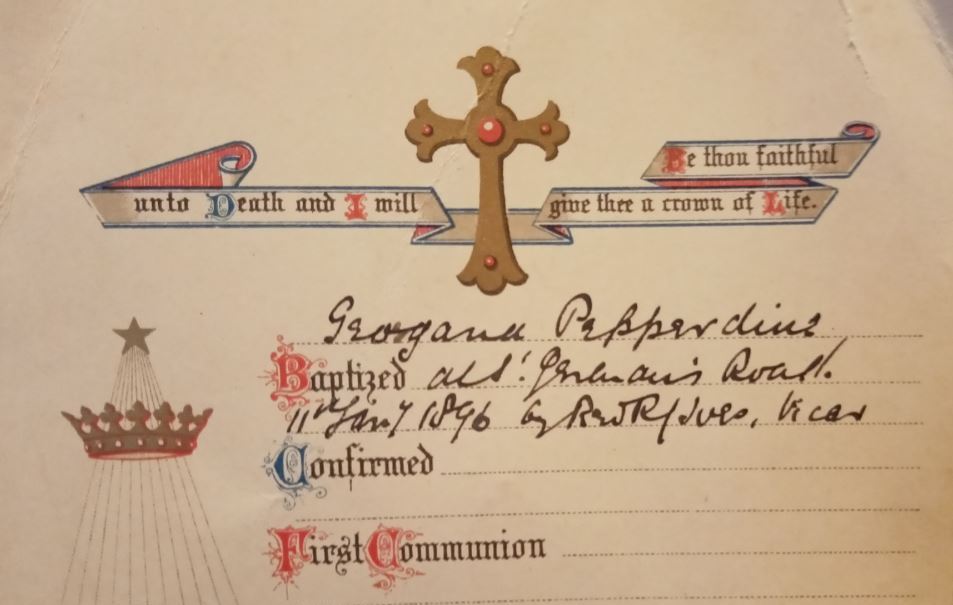 Be thou faithful
unto Death and I will give thee a crown of Life.
Georgana Pepperdine
Baptized at St. German's Road.
11th Jany 1896 by Revd R Ives, Vicar
Confirmed
First Communion